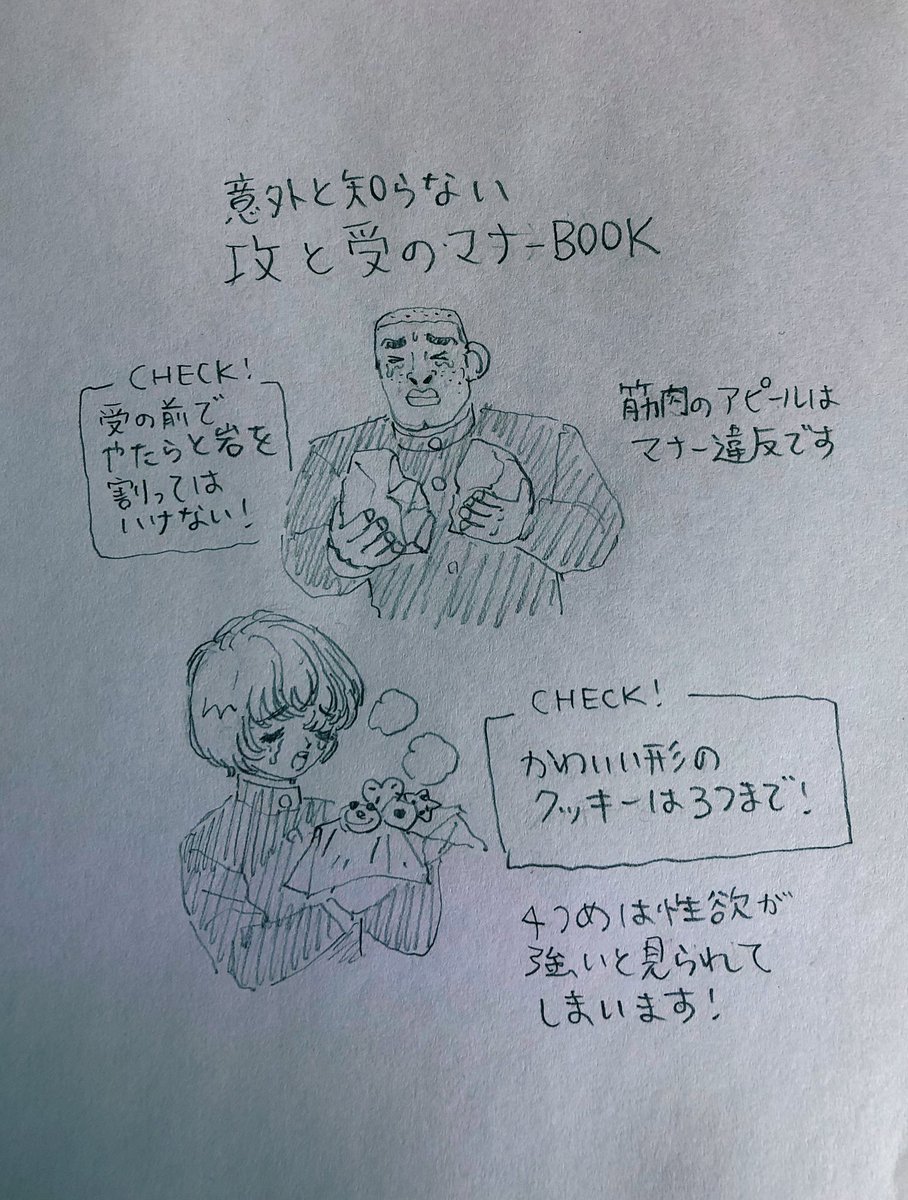 意外と知らない
攻と受のマナーBOOK
CHECK!
受の前で
やたらと岩を
割っては
いけない!
筋肉のアピールは
マナー違反です
CHECK!
かわいい形の
クッキーは3つまで!
4つめは性欲が
強いと見られて
しまいます!